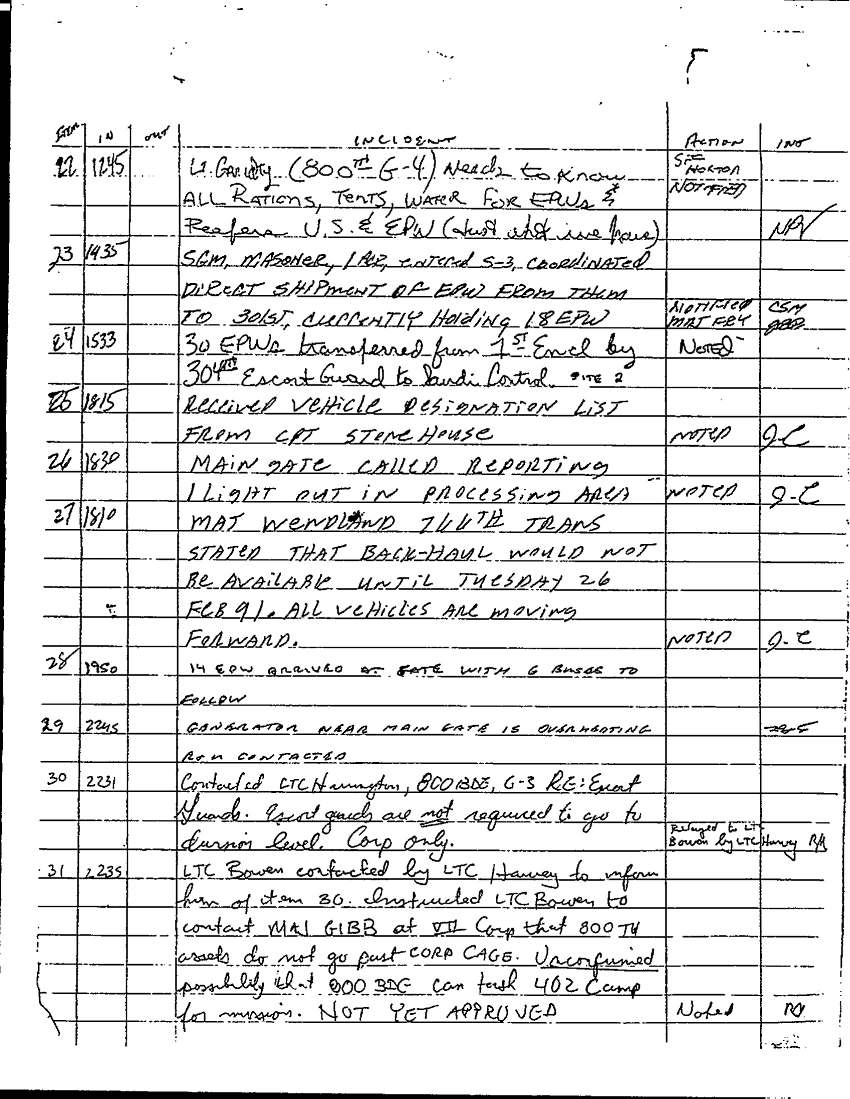 ITEM IN OUT INCIDENT ACTION INT
22 1245 Lt. Garrity (800TH G-4) Needs to Know
ALL RATIONS, TENTS, WATER FOR EPWs &
Reefers U.S. & EPW (Just what we have)
SFC HORTON NOTIFIED
23 1435 SGM, MASONER, entered S-3, COORDINATED
DIRECT SHIPMENT OF EPW FROM THEM
TO 301ST, CURRENTLY Holding 18 EPW NOTIFIED CSM
24 1533 30 EPWs transferred from 1ST Encl by NOTED
304TH Escort Guard to Saudi Control. SITE 2
25 1815 RECEIVED VEHICLE DESIGNATION LIST
FROM CPT STONEHOUSE NOTED J-C
26 1830 MAIN GATE CALLED REPORTING
1 LIGHT OUT IN PROCESSING AREA NOTED J-C
27 1810 MAJ WENDLAND TRANS
STATED THAT BACK-HAUL WOULD NOT
BE AVAILABLE UNTIL TUESDAY 26
FEB 91. ALL VEHICLES ARE MOVING
FORWARD. NOTED J-C
28 1950 14 EPW ARRIVED AT GATE WITH 6 BUSES TO
FOLLOW
29 2245 GENERATOR NEAR MAIN GATE IS OVERHEATING
CONTACTED
30 2231 Contacted LTC Harrington, 800 BDE, G-3 RE: Escort
Guards. Escort guards are not required to go to
division level. Corp only.
Relayed to LTC
Bowen by LTC Harvey
31 2235 LTC Bowen contacted by LTC Harvey to inform
him of item 30. Instructed LTC Bowen to
contact MAJ GIBB at VII Corp that 800 TH
assets do not go past CORP CAGE. Unconfirmed
possibility that 800 BDE can task 402 Camp
for mission. NOT YET APPROVED Noted